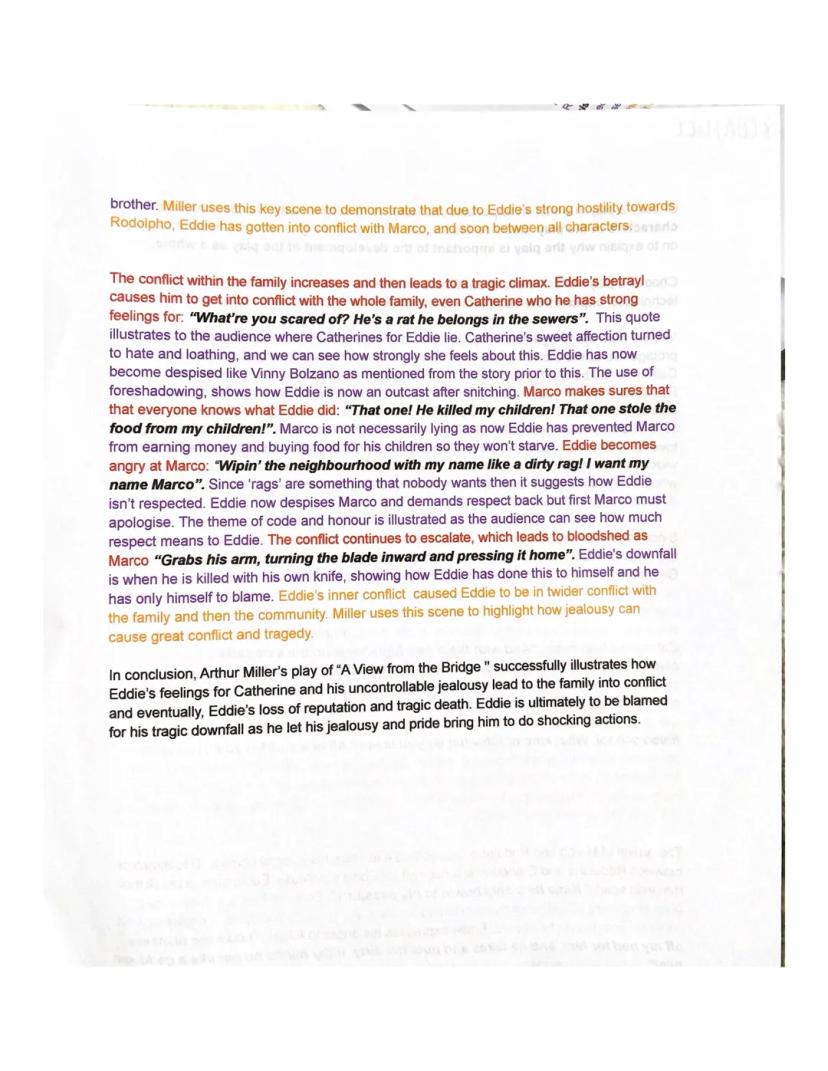 brother. Miller uses this key scene to demonstrate that due to Eddie's strong hostility towards
Rodolpho, Eddie has gotten into conflict with Marco, and soon between all characters.
The conflict within the family increases and then leads to a tragic climax. Eddie's betrayl
causes him to get into conflict with the whole family, even Catherine who he has strong
feelings for: “What're you scared of? He's a rat he belongs in the sewers”. This quote
illustrates to the audience where Catherines for Eddie lie. Catherine's sweet affection turned
to hate and loathing, and we can see how strongly she feels about this. Eddie has now
become despised like Vinny Bolzano as mentioned from the story prior to this. The use of
foreshadowing, shows how Eddie is now an outcast after snitching. Marco makes sures that
that everyone knows what Eddie did: “That one! He killed my children! That one stole the
food from my children!”. Marco is not necessarily lying as now Eddie has prevented Marco
from earning money and buying food for his children so they won't starve. Eddie becomes
angry at Marco: “Wipin' the neighbourhood with my name like a dirty rag! I want my
name Marco”. Since 'rags' are something that nobody wants then it suggests how Eddie
isn't respected. Eddie now despises Marco and demands respect back but first Marco must
apologise. The theme of code and honour is illustrated as the audience can see how much
respect means to Eddie. The conflict continues to escalate, which leads to bloodshed as
Marco “Grabs his arm, turning the blade inward and pressing it home”. Eddie's downfall
is when he is killed with his own knife, showing how Eddie has done this to himself and he
has only himself to blame. Eddie's inner conflict caused Eddie to be in twider conflict with
the family and then the community. Miller uses this scene to highlight how jealousy can
cause great conflict and tragedy.
In conclusion, Arthur Miller's play of “A View from the Bridge " successfully illustrates how
Eddie's feelings for Catherine and his uncontrollable jealousy lead to the family into conflict
and eventually, Eddie's loss of reputation and tragic death. Eddie is ultimately to be blamed
for his tragic downfall as he let his jealousy and pride bring him to do shocking actions.